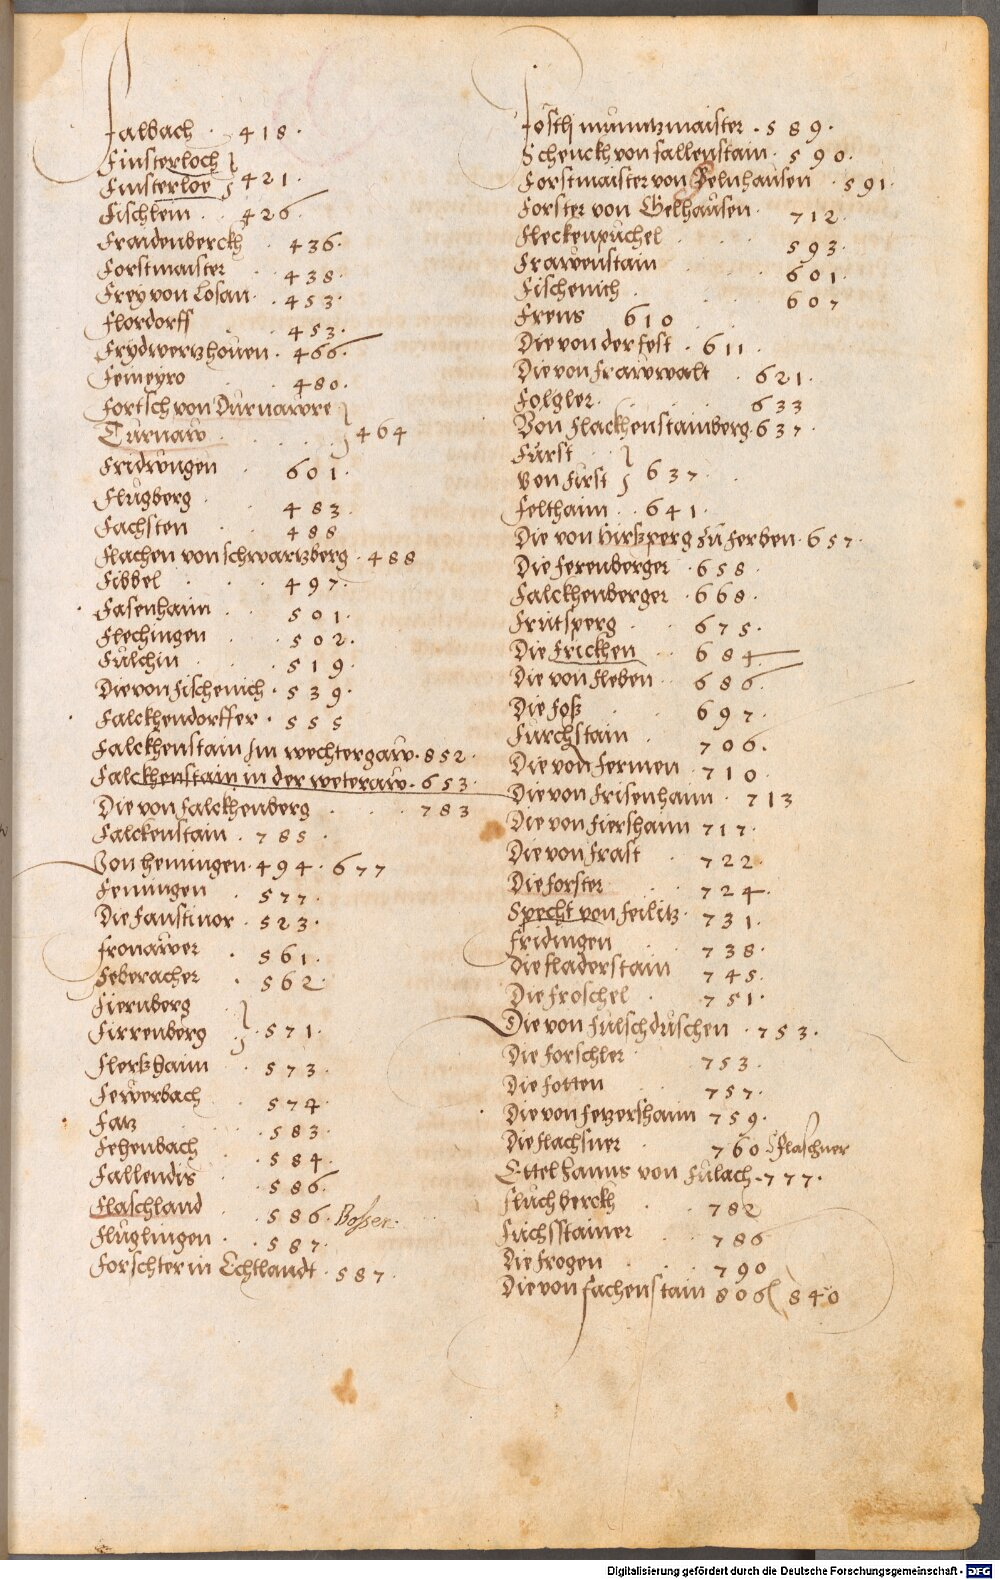 Falbach · 418 ·
Finsterloch }
Finsterloe } 421 ·
Fischlein · · 426 ·
Fraidenberckh · 436 ·
Forstmaister · · 438
Frey von Losan · · 453 ·
Flordorff · · 453 ·
Frydwertzhoven · 466 ·
Femeyro · · 480 ·
Fortsch von Durnawre }
Turnaw · · · · } 464
Fridingen · 601 ·
Flugberg · · 483 ·
Fachsten · · 488
Flachen von Schwartzberg · 488
Fibbel · · · 497 ·
Fasenhaim · · 501 ·
Flechingen · · 502 ·
Fulchin · · · 519 ·
Die von Fischenich · 539 ·
Falckhendorffer · 555
Falckhenstain Im wechtergaw · 852 ·
Falckhenstain in der weteraw · 653 ·
Die von Falckhenberg · · 783
Falckenstain · 785 ·
Von Hemingen · 494 · 677
Feningen · 577 ·
Die Faustinor · 523 ·
Fronawer · 561 ·
Feberacher · 562 ·
Fiernberg }
Firrenberg } · 571 ·
Flerßhaim · 573 ·
Fewerbach · 574 ·
Fatz · · · 583 ·
Fehenbach · 584 ·
Fallendis · 586 ·
Flaschland · 586 · Boßer ·
Fluglingen · · 587 ·
Forschter in Echtlandt · 587 ·
Josth muntzmaister · 589 ·
Schenckh von Fallenstain · 590 ·
Forstmaister von Gelnhausen · 591 ·
Forster von Gelhausen · 712 ·
Fleckenpuchel · · · 593 ·
Frawenstain · · 601 ·
Fischenich · · · 607
Frens 610 · ·
Die von der Fest · 611 ·
Die von Frawwalt · 621 ·
Folgler · · · 633
Von Flackhenstainberg · 637 ·
Furst }
Von First } 637 ·
Felthaim · · 641 ·
Die von Hirßperg zu Ferben · 657 ·
Die Ferenberger · 658 ·
Falckhenberger · 668 ·
Frutsperg · · 675 ·
Die Frickhen · · 684
Die von Fleben · 686 ·
Die Foß · · 697 ·
Furchstain · · 706 ·
Die von Fermen · 710 ·
Die von Frisenhann · 713
Die von Fiershaim 717 ·
Die von Frast · 722 ·
Die Forster · · 724 ·
Specht von Feilitz · 731 ·
Fridingen · 738 ·
Die Fladerstain 745 ·
Die Froschel · 751 ·
Die von Fulschduschen · 753 ·
Die Forschler · 753 ·
Die Fotten · 757 ·
Die von Fetzershaim 759 ·
Die Flachsner · 760 · Flaschner
Ettel Hanns von Fulach · 777 ·
Fluchberckh · · 782
Fuchsstainer · 786
Die Frogen · · 790
Die von Fachenstain 806 ( 840
Digitalisierung gefördert durch die Deutsche Forschungsgemeinschaft - DFG